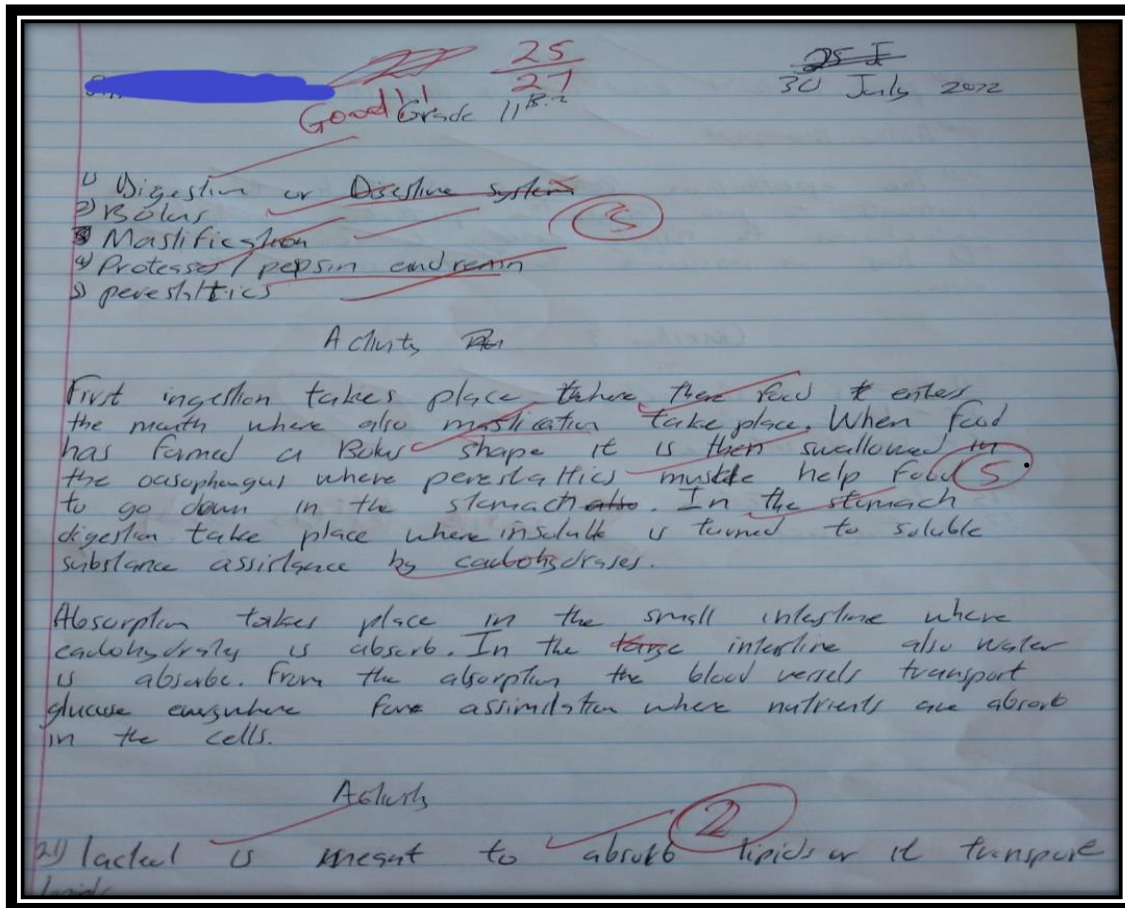 25
27
30 July 2022
Good!! Grade 11
1) Digestion or Disestive system
2) Bolus
3) Mastification
4) Proteases / pepsin and renin
5) pereslttics
5
Activity
First ingestion takes place where there food enters
the mouth where also mastication take place. When food
has formed a Bolus shape it is then swallowed in
the oasophengus where perestattics muskle help food
5
to go down in the stomach also. In the stomach
digestion take place where insoluble is turned to soluble
substance assistance by carbohydrases.
Absorption takes place in the small intestine where
cadohydrates is absorb. In the large intestine also water
is absorbe. From the absorption the blood vessels transport
glucose everywhere for assimilation where nutrients are absorb
in the cells.
Activity
2
2.1) lacteal is meant to absorb lipids or it transport